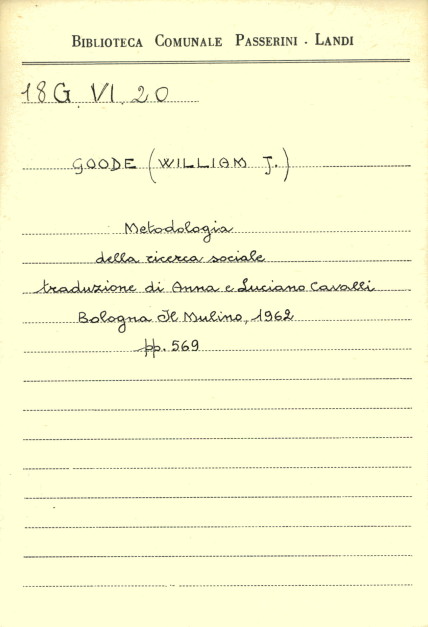 BIBLIOTECA COMUNALE PASSERINI - LANDI
18G. VI. 20
GOODE (WILLIAM J.)
Metodologia
della ricerca sociale
traduzione di Anna e Luciano Cavalli
Bologna Il Mulino, 1962
pp. 569